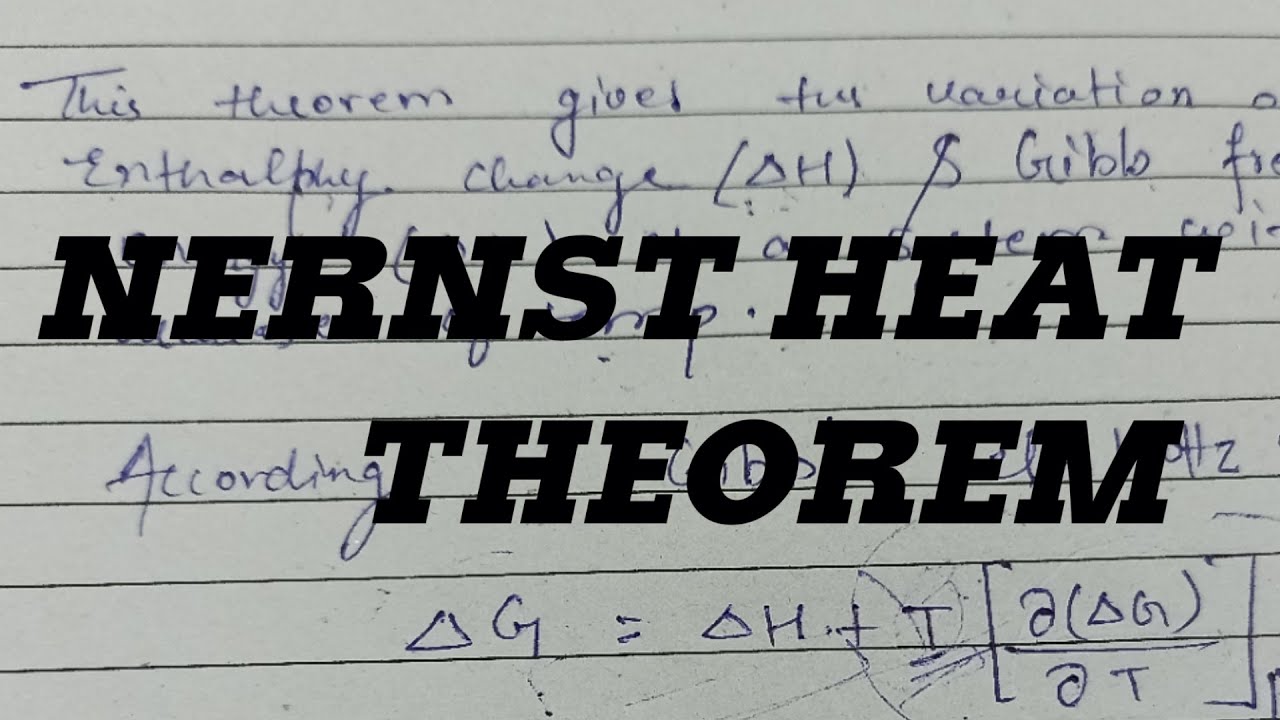 This theorem gives the variation o
Enthalphy change (ΔH) & Gibb fre
NERNST HEAT
temp.
THEOREM
According
ΔG = ΔH + T [∂(ΔG)/∂T]P